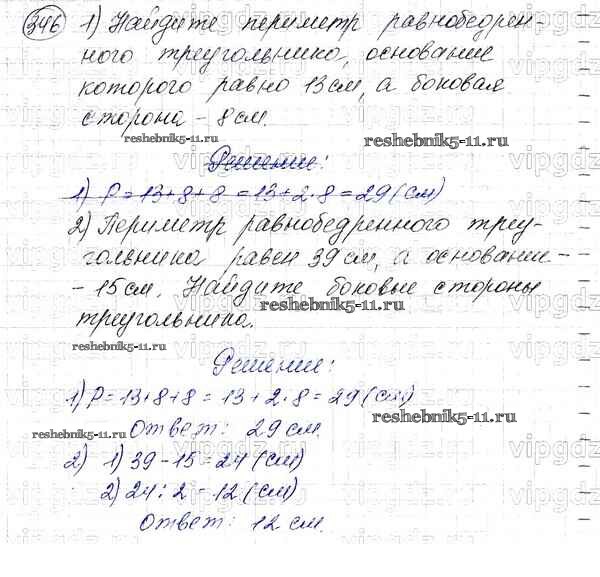 346 1) Найдите периметр равнобедрен-
ного треугольника, основание
которого равно 13 см, а боковая
сторона - 8 см.
reshebnik5-11.ru
reshebnik5-11.ru
Решение:
1) P = 13+8+8 = 13+2·8 = 29 (см)
2) Периметр равнобедренного треу-
гольника равен 39 см, а основание -
- 15 см. Найдите боковые стороны
reshebnik5-11.ru
треугольника.
reshebnik5-11.ru
Решение:
1) P = 13+8+8 = 13 + 2·8 = 29 (см)
reshebnik5-11.ru
Ответ: 29 см.
reshebnik5-11.ru
2) 1) 39 - 15 = 24 (см)
2) 24 : 2 = 12 (см)
Ответ: 12 см.